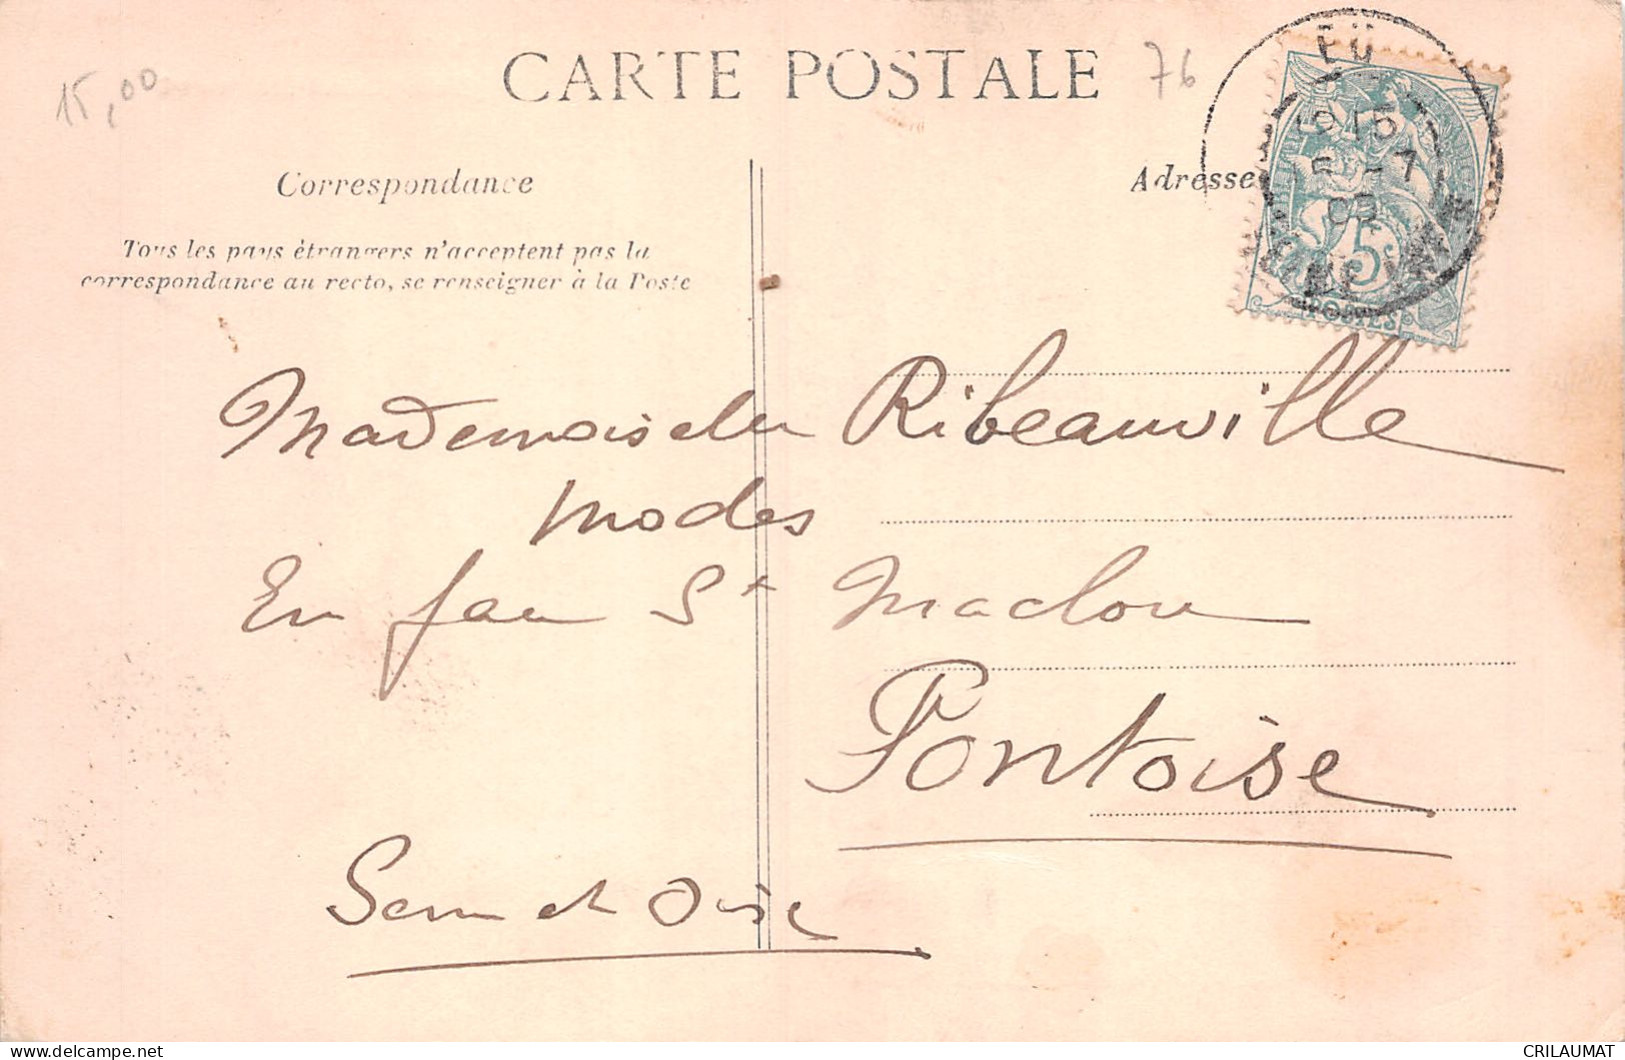 15,00
CARTE POSTALE
76
Correspondance
Adresse
Tous les pays étrangers n'acceptent pas la
correspondance au recto, se renseigner à la Poste
EU
5-7
5
POSTES
Mademoiselle Ribeauville
Modes
En face St Maclou
Pontoise
Seine et Oise
CRILAUMAT